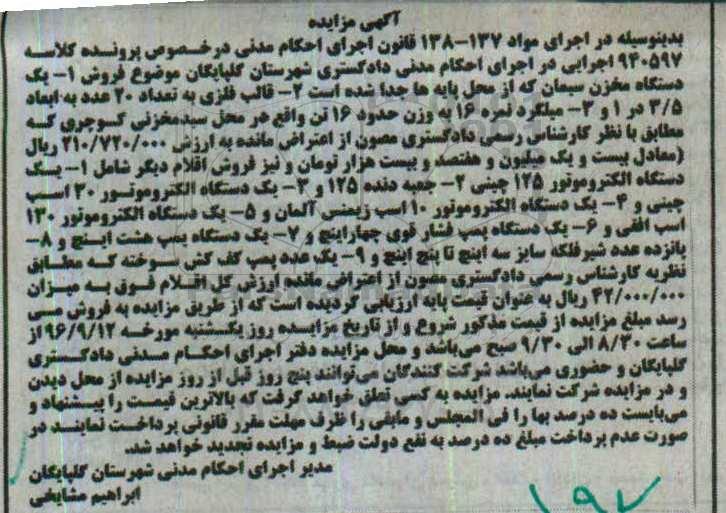 آگهی مزایده
بدینوسیله در اجرای مواد ۱۳۷-۱۳۸ قانون اجرای احکام مدنی درخصوص پرونده کلاسه
۹۴۰۵۹۷ اجرایی در اجرای احکام مدنی دادگستری شهرستان گلپایگان موضوع فروش ۱- یک
دستگاه مخزن سیمان که از محل پایه ها جدا شده است ۲- قالب فلزی به تعداد ۲۰ عدد به ابعاد
۳/۵ در ۱ و ۳- میلگرد نمره ۱۶ به وزن حدود ۱۶ تن واقع در محل سدمخزنی کوچری که
مطابق با نظر کارشناس رسمی دادگستری مصون از اعتراض مانده به ارزش ۲۱۰/۷۲۰/۰۰۰ ریال
(معادل بیست و یک میلیون و هفتصد و بیست هزار تومان و نیز فروش اقلام دیگر شامل ۱- یک
دستگاه الکتروموتور ۱۲۵ چینی ۲- جعبه دنده ۱۲۵ و ۳- یک دستگاه الکتروموتور ۳۰ اسب
چینی و ۴- یک دستگاه الکتروموتور ۱۰ اسب زیمنس آلمان و ۵- یک دستگاه الکتروموتور ۱۳۰
اسب افقی و ۶- یک دستگاه پمپ فشار قوی چهاراینچ و ۷- یک دستگاه پمپ هشت اینچ و ۸-
پانزده عدد شیرفلکه سایز سه اینچ تا پنج اینچ و ۹- یک عدد پمپ کف کش سوخته که مطابق
نظریه کارشناس رسمی دادگستری مصون از اعتراض مانده ارزش کل اقلام فوق به میزان
۴۲/۰۰۰/۰۰۰ ریال به عنوان قیمت پایه ارزیابی گردیده است که از طریق مزایده به فروش می
رسد مبلغ مزایده از قیمت مذکور شروع و از تاریخ مزایده روز یکشنبه مورخه ۹۶/۹/۱۲ از
ساعت ۸/۳۰ الی ۹/۳۰ صبح می‌باشد و محل مزایده دفتر اجرای احکام مدنی دادگستری
گلپایگان و حضوری می‌باشد شرکت کنندگان می‌توانند پنج روز قبل از روز مزایده از محل دیدن
و در مزایده شرکت نمایند. مزایده به کسی تعلق خواهد گرفت که بالاترین قیمت را پیشنهاد و
می‌بایست ده درصد بها را فی المجلس و مابقی را ظرف مهلت مقرر قانونی پرداخت نمایند در
صورت عدم پرداخت مبلغ ده درصد به نفع دولت ضبط و مزایده تجدید خواهد شد.
مدیر اجرای احکام مدنی شهرستان گلپایگان
ابراهیم مشایخی
۱۹۷